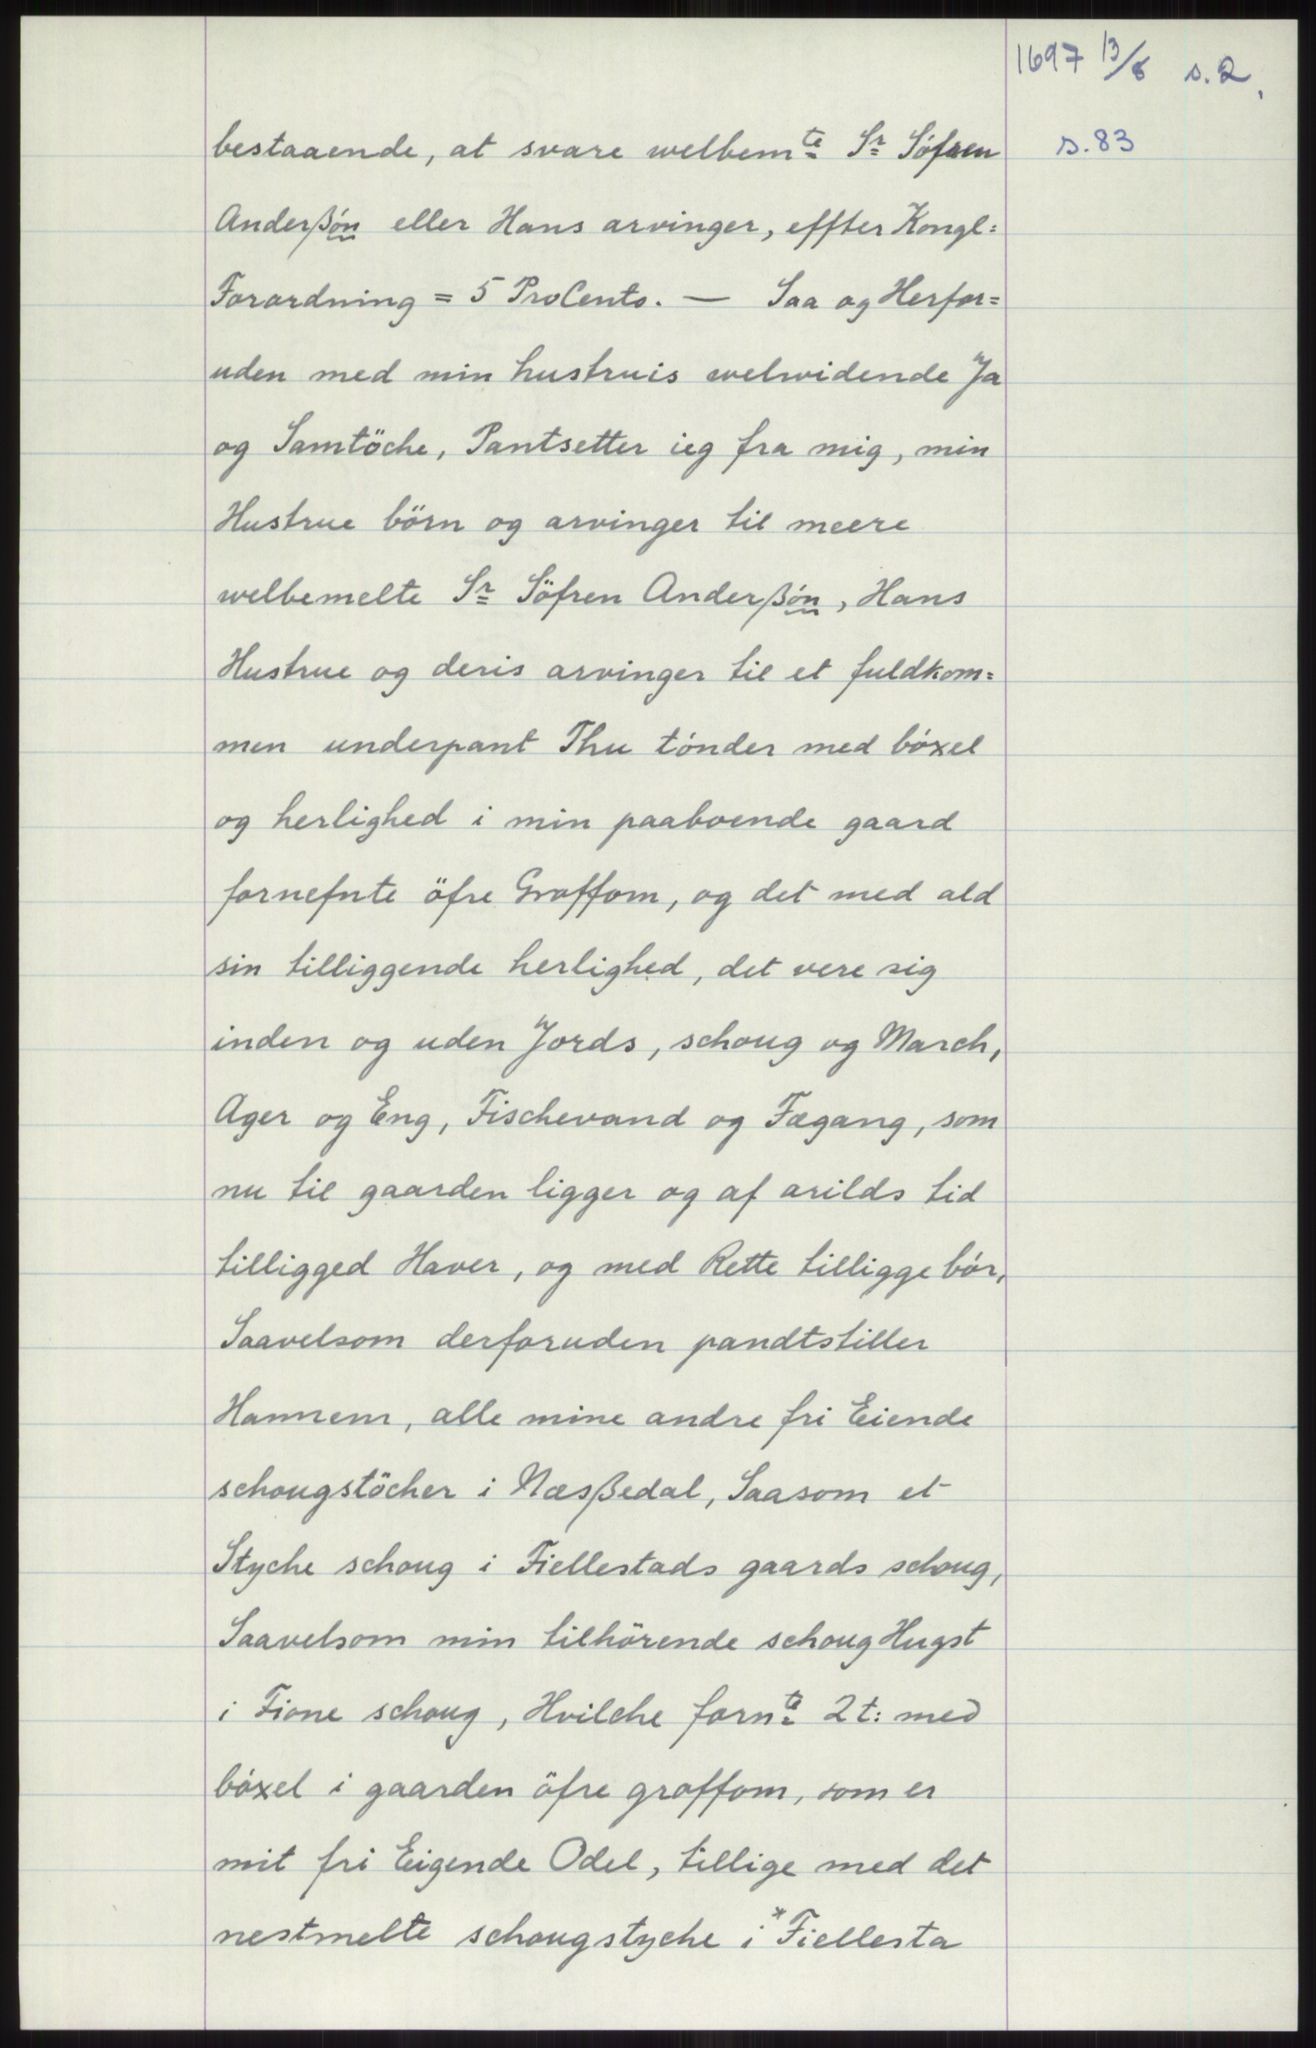 1697 13/6 s. 2,
s. 83
bestaaende, at svare welbemte Sr Söfren
Anderßón eller Hans arvinger, effter Kongl:
Forordning = 5 ProCento. — Saa og Herfor=
uden med min hustruis welwidende Ja
og Samtöche, Pantsetter ieg fra mig, min
Hustrue börn og arvinger til meere
welbemelte Sr Söfren Anderßón, Hans
Hustrue og deris arvinger til et fuldkom=
men underpant Thu tónder med bóxel
og herlighed i min paaboende gaard
fornefnte öfre Groffom, og det med ald
sin tilliggende herlighed, det vere sig
inden og uden Jords, schoug og March,
Ager og Eng, Fischevand og Fægang, som
nu til gaarden ligger og af arilds tid
tilligged Haver, og med Rette tilligge bór,
Saavelsom derforuden pandtstiller
Hannem, alle mine andre fri Eiende
schougstöcher i Næsßedal, Saasom et
Styche schoug i Fiellestads gaards schoug,
Saavelsom min tilhörende schoug Hugst
i Fione schoug, Hvilche fornte 2 t: med
bóxel i gaarden öfre groffom, som er
mit fri Eigende Odel, tillige med det
nestmelte schougstyche i *Fiellesta